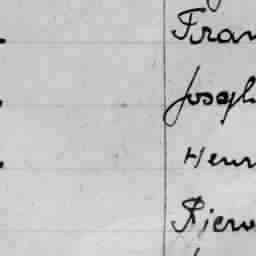 Fran
Joseph
Henr
Pierr